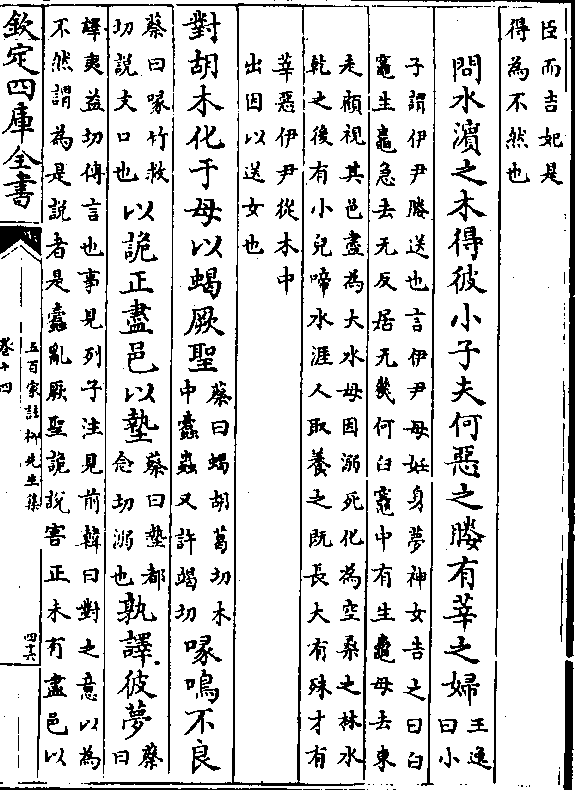 臣而吉妃是
得為不然也
問水濵之木得彼小子夫何惡之媵有莘之婦王逸曰小
子謂伊尹媵送也言伊尹母妊身夢神女告之曰臼
竈生鼃急去无反居无幾何臼竈中有生鼃母去東
走顧視其邑盡為大水母因溺死化為空桑之林水
乾之後有小兒啼水涯人取養之既長大有殊才有
莘惡伊尹從木中
出因以送女也
對胡木化于母以蝎厥聖蔡曰蝎胡葛切木中蠧蟲又許竭切喙鳴不良
蔡曰喙竹救切說文口也以詭正盡邑以墊蔡曰墊都念切溺也孰譯彼夢蔡曰
譯夷益切傳言也事見列子注見前韓曰對之意以為
不然謂為是說者是蠧亂厥聖詭說害正未有盡邑以
欽定四庫全書
五百家註柳先生集
卷十四
四六